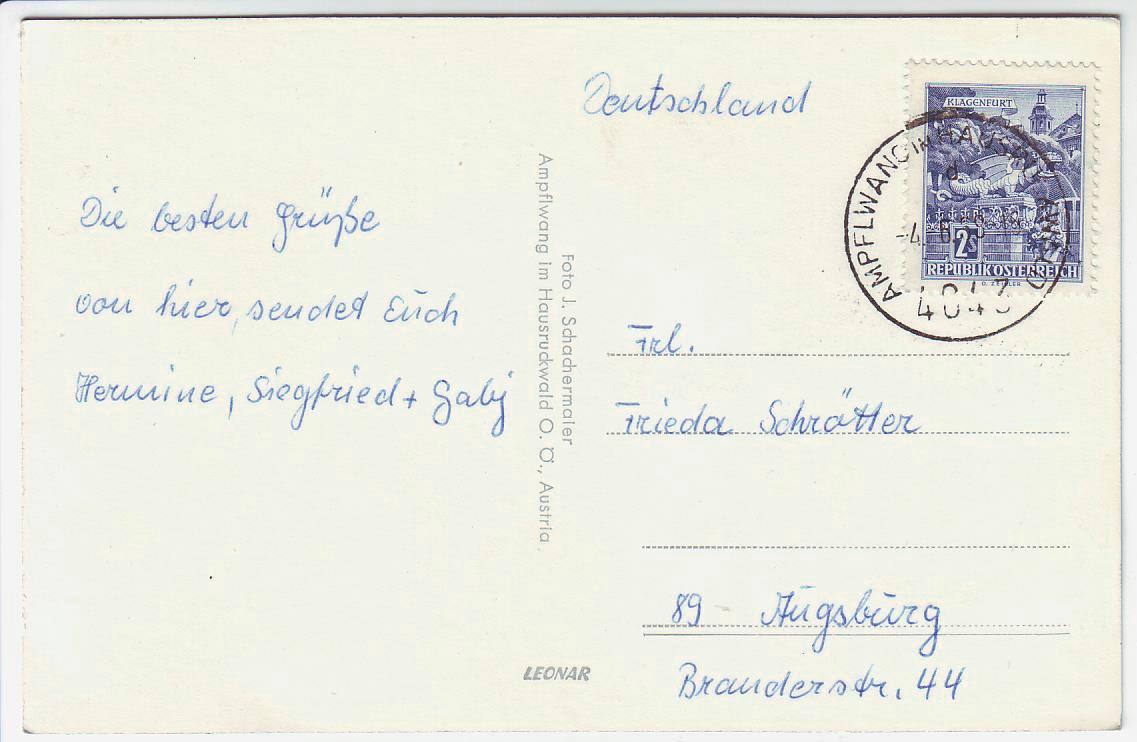 Deutschland
KLAGENFURT
2S
REPUBLIK ÖSTERREICH
AMPFLWANG IM
d
4843
Die besten Grüße
von hier, sendet Euch
Hermine, Siegfried + Gabij
Foto J. Schachermaier
Ampflwang im Hausruckwald O. Ö., Austria
Frl.
Frieda Schrötter
89 Augsburg
Branderstr. 44
LEONAR